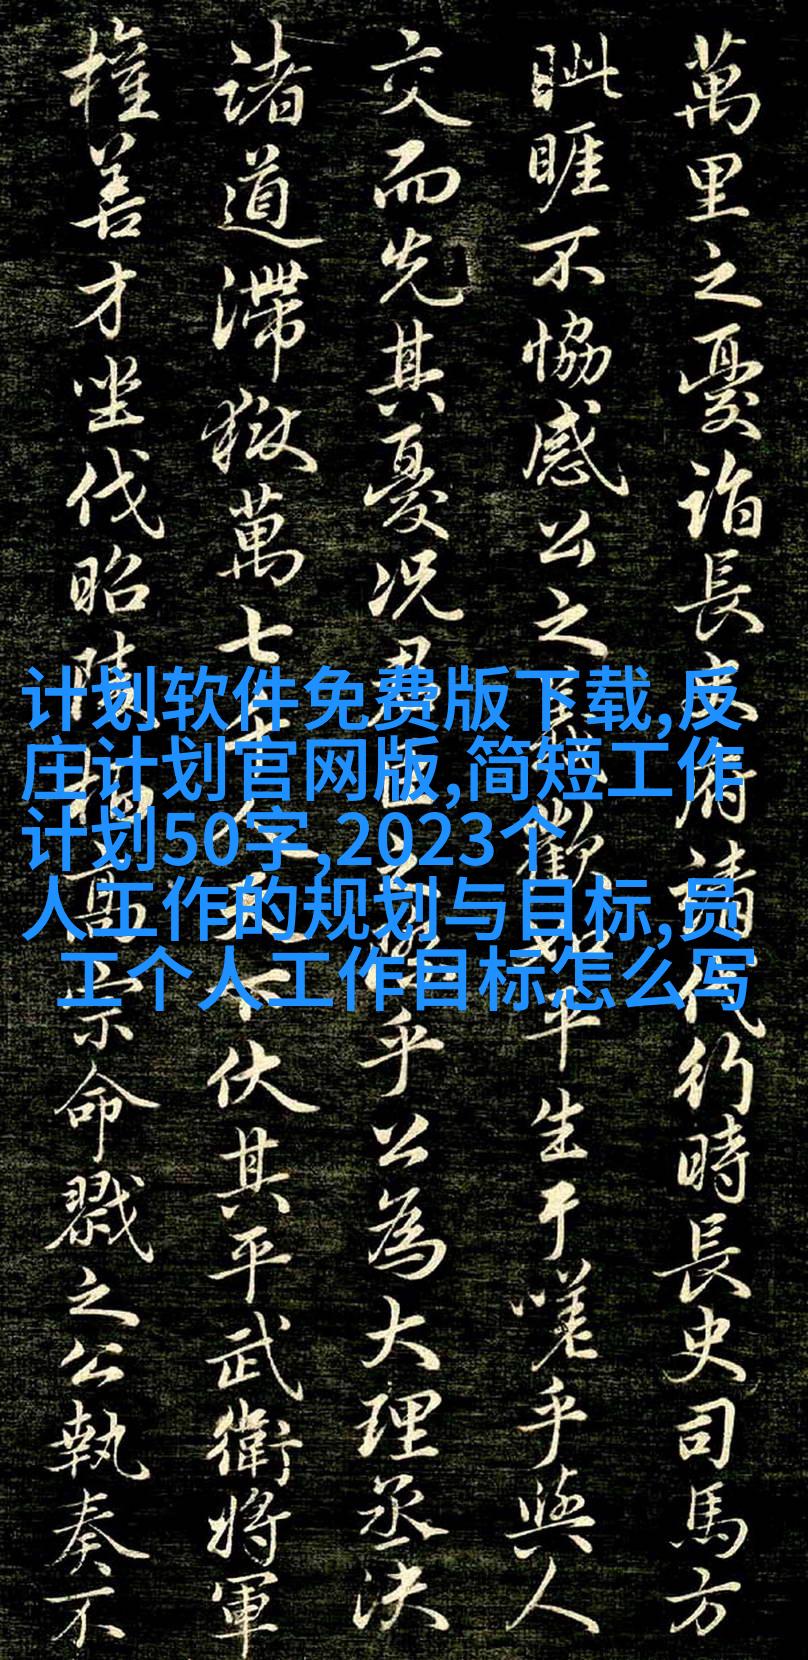 萬里之憂詣長史府請代行時長史司馬方
眦睚不協感公之義歡如平生于嗟乎與人
交而先其憂況君臣之際乎公為大理丞決
諸道滯獄萬七千人天下伏其平武衛將軍
權善才坐伐昭陵柏高宗命戮之公執奏不
计划软件免费版下载,反
庄计划官网版,简短工作
计划50字,2023个
人工作的规划与目标,员
工个人工作目标怎么写